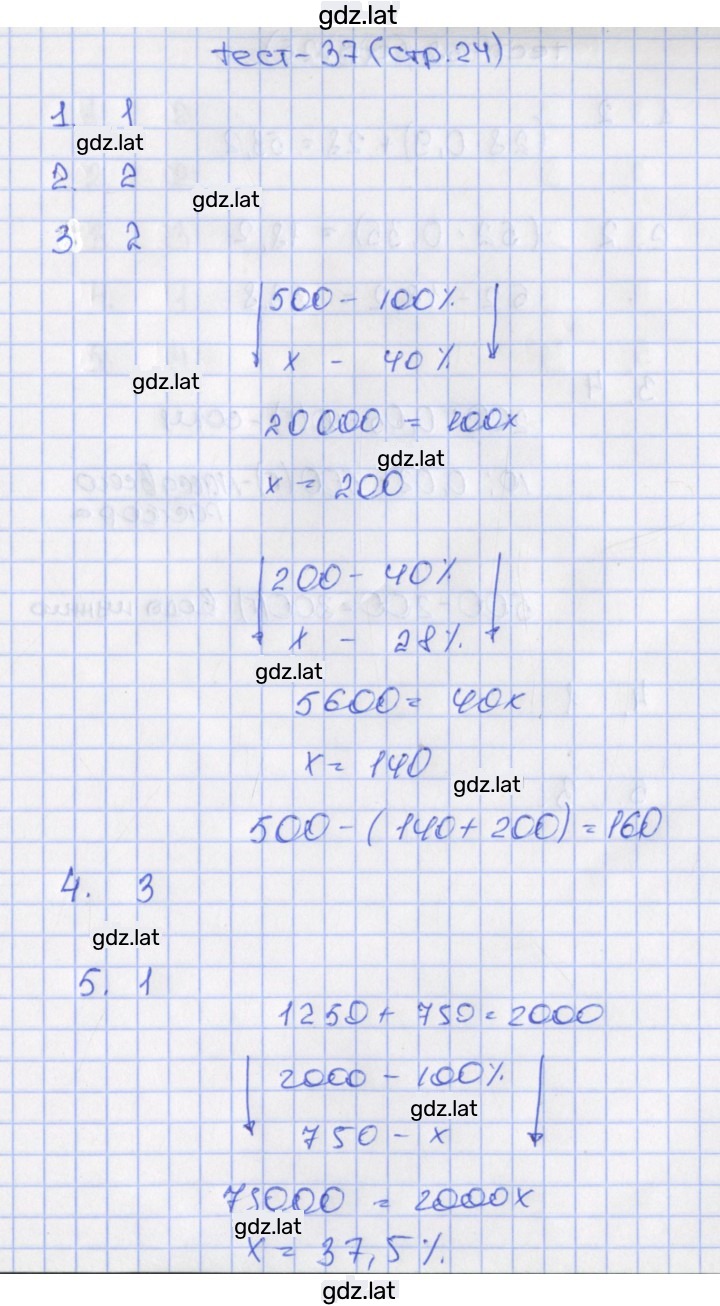 gdz.lat
тест-37 (стр.24)
1. 1
gdz.lat
2. 2
gdz.lat
3. 2
500 - 100%
x - 40%
gdz.lat
20000 = 100x
gdz.lat
x = 200
200 - 40%
x - 28%
gdz.lat
5600 = 40x
x = 140
gdz.lat
500 - (140 + 200) = 160
4. 3
gdz.lat
5. 1
1250 + 750 = 2000
2000 - 100%
gdz.lat
750 - x
75000 = 2000x
gdz.lat
x = 37,5%
gdz.lat